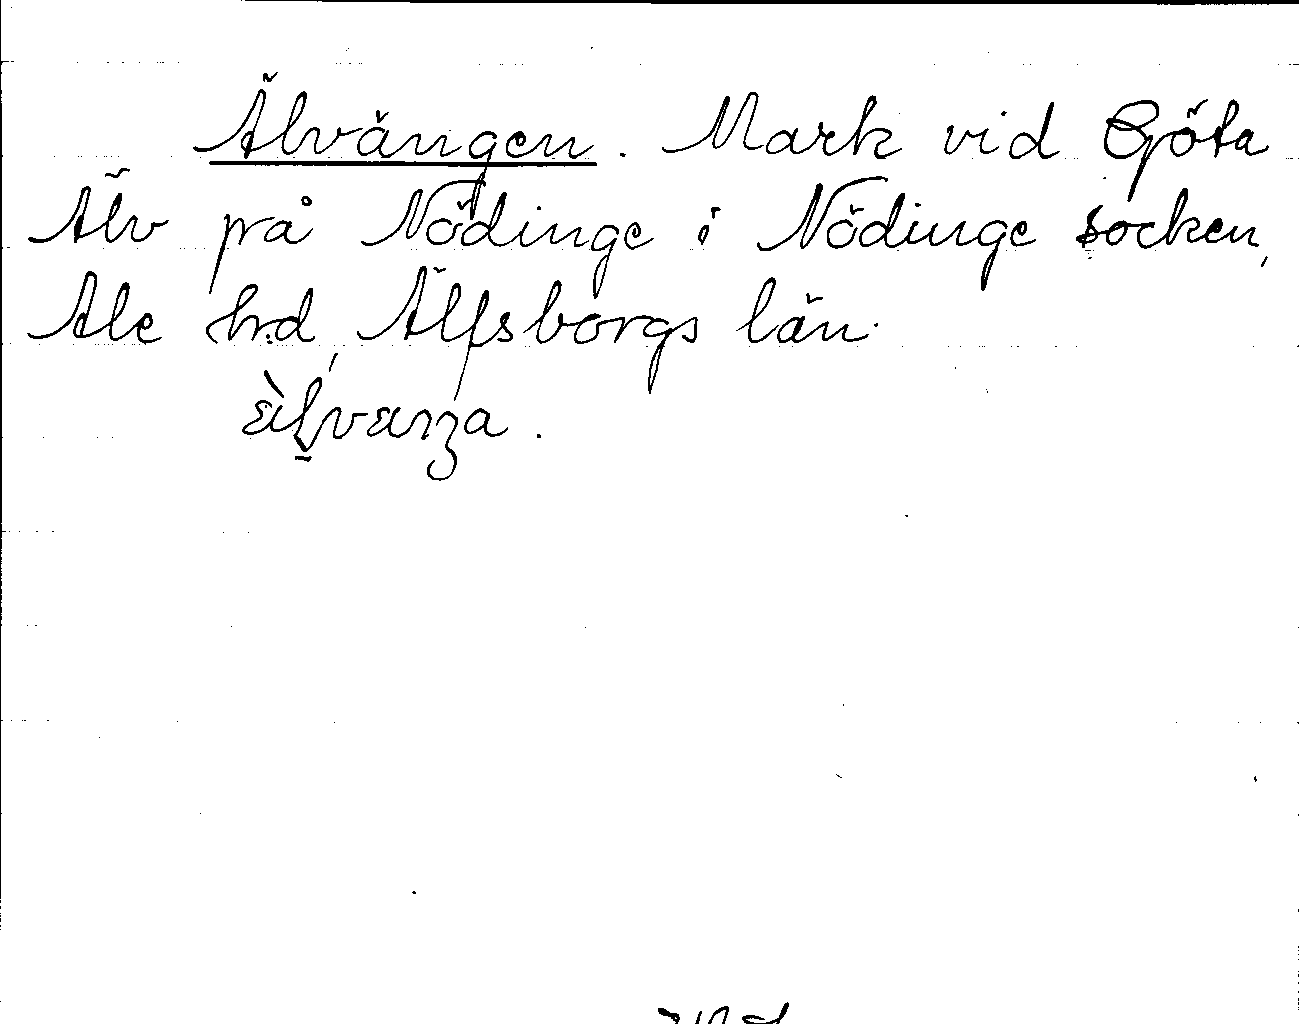 Älvängen. Mark vid Göta
Älv på Nödinge i Nödinge socken,
Ale hrd, Älfsborgs län.